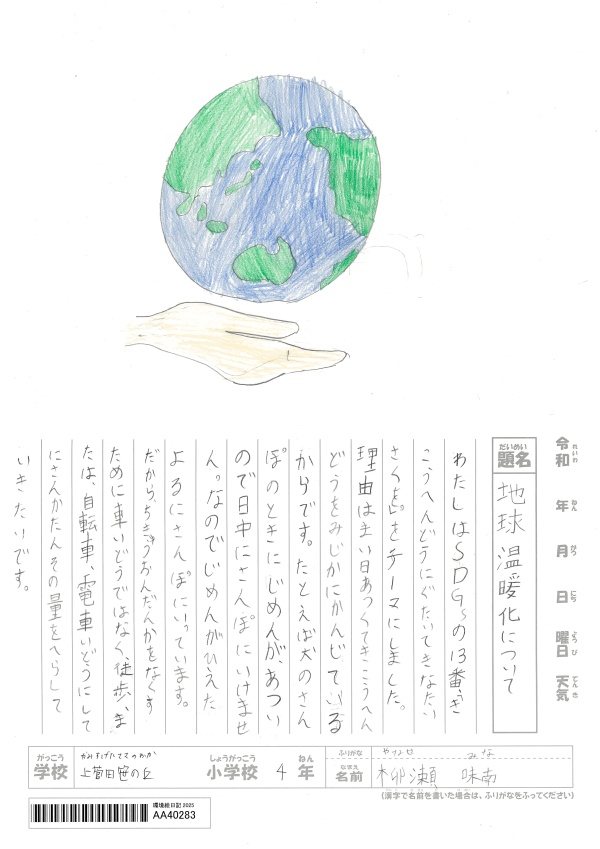 令和 年 月 日 曜日 天気
れいわ ねん がつ にち ようび てんき
だいめい
題名
地球温暖化について
わたしはSDGsの13番、「き
こうへんどうにぐたいてきなたい
さくを」をテーマにしました。
理由は、まい日あつくてきこうへん
どうをみじかにかんじている
からです。たとえば犬のさん
ぽのときにじめんが、あつい
ので日中にさんぽにいけませ
ん。なのでじめんがひえた
よるにさんぽにいっています。
だから、ちきゅうおんだんかをなくす
ために車いどうではなく、徒歩、ま
たは、自転車、電車いどうにして
にさんかたんその量をへらして
いきたいです。
がっこう
学校
かみすげたささのおか
上菅田笹の丘
しょうがっこう
小学校
4
ねん
年
ふりがな
やなせ みな
なまえ
名前
柳瀬 味南
(漢字で名前を書いた場合は、ふりがなをふってください)
環境絵日記 2025
AA40283